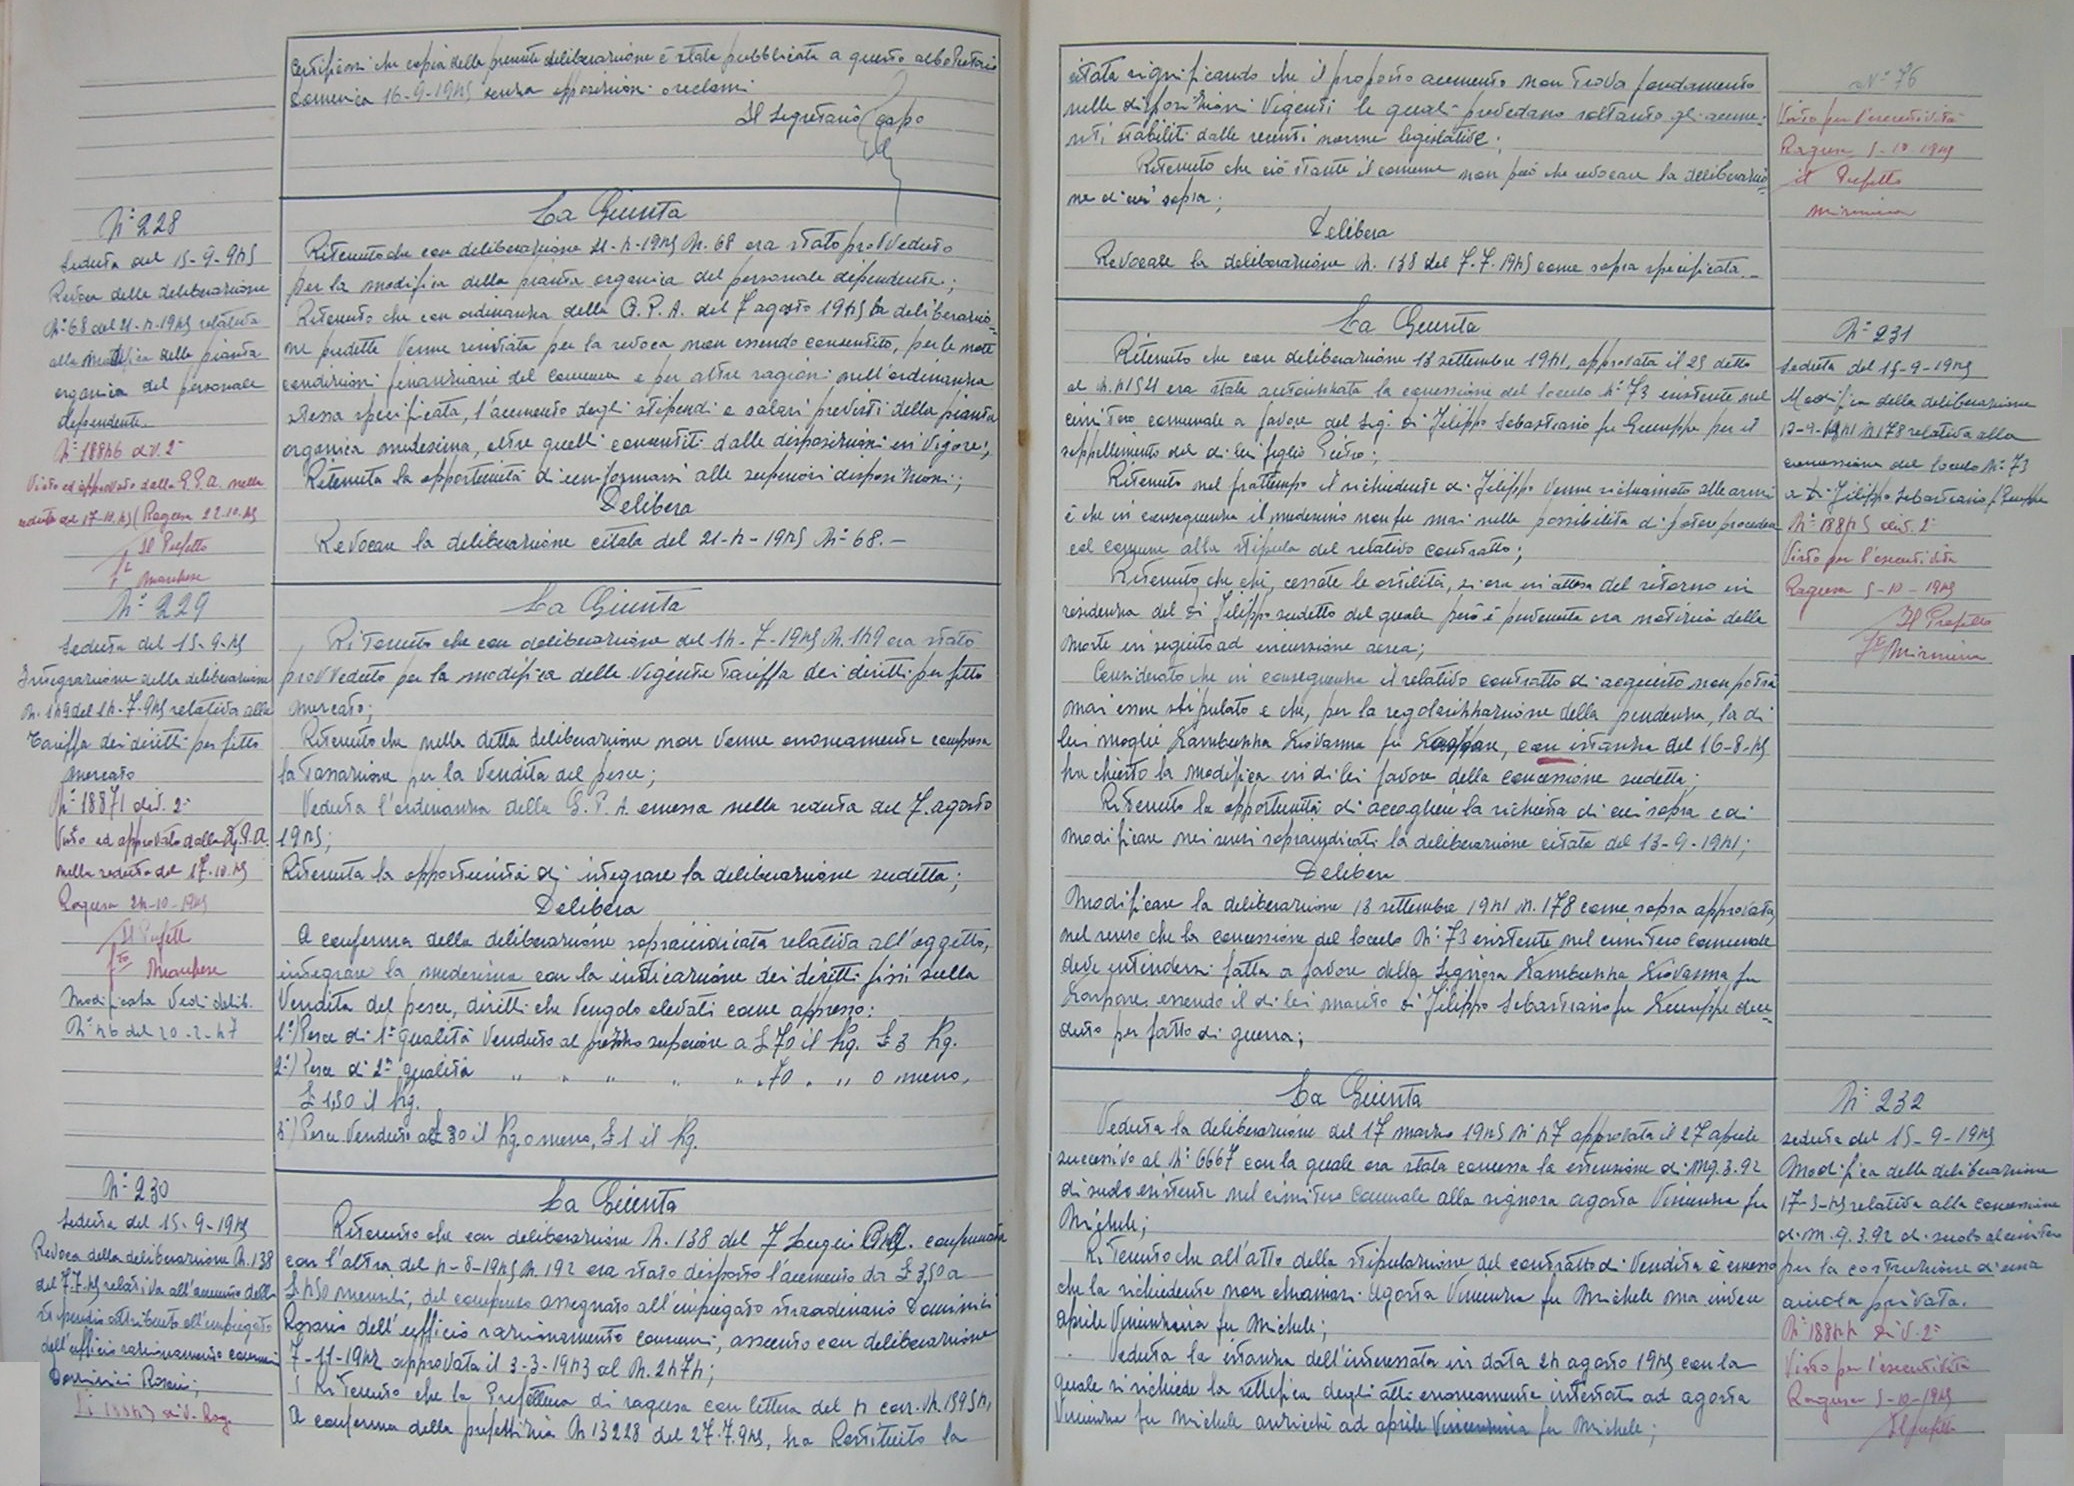 Certificasi che copia della presente deliberazione è stata pubblicata a questo albo Pretorio
domenica 16-9-1945 senza opposizioni o reclami
Il Segretario Capo
N° 228
Seduta del 15-9-945
Revoca della deliberazione
N° 68 del 21-4-1945 relativa
alla modifica della pianta
organica del personale
dipendente.
N° 18846 div. 2ª
Visto ed approvato dalla G.P.A. nella
seduta del 17-10-45 Ragusa 22-10-45
Il Prefetto
La Giunta
Ritenuto che con deliberazione 21-4-1945 N. 68 era stato provveduto
per la modifica della pianta organica del personale dipendente;
Ritenuto che con ordinanza della G.P.A. del 7 agosto 1945 la deliberazio=
ne predetta venne rinviata per la revoca non essendo consentito, per le note
condizioni finanziarie del Comune e per altre ragioni nell'ordinanza
stessa specificata, l'aumento degli stipendi e salari previsti della pianta
organica medesima, oltre quelli consentiti dalle disposizioni in vigore;
Ritenuta la opportunità di uniformarsi alle superiori disposizioni;
Delibera
Revocare la deliberazione citata del 21-4-1945 N° 68.-
N° 229
Seduta del 15-9-45
Integrazione della deliberazione
N. 149 del 14-7-945 relativa alla
Tariffa dei diritti per fitto
mercato
N° 18871 div. 2ª
Visto ed approvato dalla G.P.A.
nella seduta del 17-10-45
Ragusa 24-10-1945
Il Prefetto
Modificata Vedi delib.
N° 46 del 20-2-47
La Giunta
Ritenuto che con deliberazione del 14-7-1945 N. 149 era stato
provveduto per la modifica della vigente Tariffa dei diritti per fitto
mercato;
Ritenuto che nella detta deliberazione non venne erroneamente compresa
la Tassazione per la vendita del pesce;
Veduta l'ordinanza della G.P.A. emessa nella seduta del 7 agosto
1945;
Ritenuta la opportunità di integrare la deliberazione sudetta;
Delibera
A conferma della deliberazione sopraindicata relativa all'oggetto,
integrare la medesima con la indicazione dei diritti fissi sulla
vendita del pesce, diritti che vengolo elevati come appresso:
1°) Pesce di 1ª qualità venduto al prezzo superiore a £ 70 il Kg. £ 3 Kg.
2°) Pesce di 2ª qualità " " " " " 70 " " o meno,
£ 1,50 il Kg.
3°) Pesce venduto a £ 30 il Kg. o meno, £ 1 il Kg.
N° 230
Seduta del 15-9-1945
Revoca della deliberazione N. 138
del 7.7.45 relativa all'aumento dello
stipendio attribuito all'impiegato
dell'ufficio razionamento consumi
Dominici Rosario;
La Giunta
Ritenuto che con deliberazione N. 138 del 7 Luglio confermata
con l'altra del 4-8-1945 N. 192 era stato disposto l'aumento da £ 350 a
£ 450 mensili, del compenso assegnato all'impiegato straordinario Dominici
Rosario dell'ufficio razionamento consumi, assunto con deliberazione
7-11-1942 approvata il 3-3-1943 al N. 2474;
Ritenuto che la Prefettura di ragusa con lettera del 4 corr. N. 18954,
A conferma della prefettizia N 13228 del 27.7.945, ha restituito la
N° 76
Visto per l'esecutività
Ragusa 5-10-1945
il Prefetto
citata significando che il proposto aumento non trova fondamento
nelle disposizioni vigenti le quali prevedono soltanto gli aume=
nti stabiliti dalle recenti norme legislative;
Ritenuto che ciò stante il comune non può che revocare la deliberazio=
ne di cui sopra;
Delibera
Revocare la deliberazione N. 138 del 7.7.1945 come sopra specificata.-
N° 231
Seduta del 15-9-1945
Modifica della deliberazione
13-9-1941 N 178 relativa alla
concessione del loculo N° 73
a Di Filippo Sebastiano fu Giuseppe
N° 18845 div. 2ª
Visto per l'esecutività
Ragusa 5-10-1945
Il Prefetto
La Giunta
Ritenuto che con deliberazione 13 settembre 1941, approvata il 25 detto
al N. 41521 era stata autorizzata la concessione del loculo N° 73 esistente nel
cimitero comunale a favore del Sig. Di Filippo Sebastiano fu Giuseppe per il
seppellimento del di lui figlio Pietro;
Ritenuto nel frattempo il richiedente Di Filippo venne richiamato alle armi
e che in conseguenza il medesimo non fu mai nella possibilità di poter procedere
col comune alla stipula del relativo contratto;
Ritenuto che chi, cessate le ostilità, si era in attesa del ritorno in
residenza del Di Filippo sudetto del quale però è pervenuta ora notizia della
morte in seguito ad incursione aerea;
Considerato che in conseguenza il relativo contratto di acquisto non potrà
mai essere stipulato e che, per la regolarizzazione della pendenza, la di
lui moglie Giovanna fu Gaspare, con istanza del 16-8-45
ha chiesto la modifica in di lei favore della concessione sudetta;
Ritenuto la opportunità di accogliere la richiesta di cui sopra e di
modificare nei sensi sopraindicati la deliberazione citata del 13-9-1941;
Delibera
Modificare la deliberazione 13 settembre 1941 N. 178 come sopra approvata,
nel senso che la concessione del loculo N° 73 esistente nel cimitero Comunale
deve intendersi fatta a favore della Signora Giovanna fu
Gaspare, essendo il di lei marito Di Filippo Sebastiano fu Giuseppe dece=
duto per fatto di guerra;
N° 232
Seduta del 15-9-1945
Modifica della deliberazione
17-3-45 relativa alla concessione
di m.q. 3.92 di suolo al cimitero
per la costruzione di una
aiuola privata.
N° 18844 Div. 2ª
Visto per l'esecutività
Ragusa 5-10-1945
Il prefetto
La Giunta
Veduta la deliberazione del 17 marzo 1945 N° 47 approvata il 27 aprile
successivo al N° 6667 con la quale era stata concessa la estensione di Mq. 3.92
di suolo esistente nel cimitero Comunale alla signora Agosta Vincenza fu
Michele;
Ritenuto che all'atto della stipulazione del contratto di vendita è emerso
che la richiedente non chiamasi Agosta Vincenza fu Michele ma invece
Aprile Vincenzina fu Michele;
Veduta la istanza dell'interessata in data 24 agosto 1945 con la
quale si richiede la rettifica degli atti erroneamente intestati ad agosta
Vincenza fu Michele anzicché ad aprile Vincenzina fu Michele;